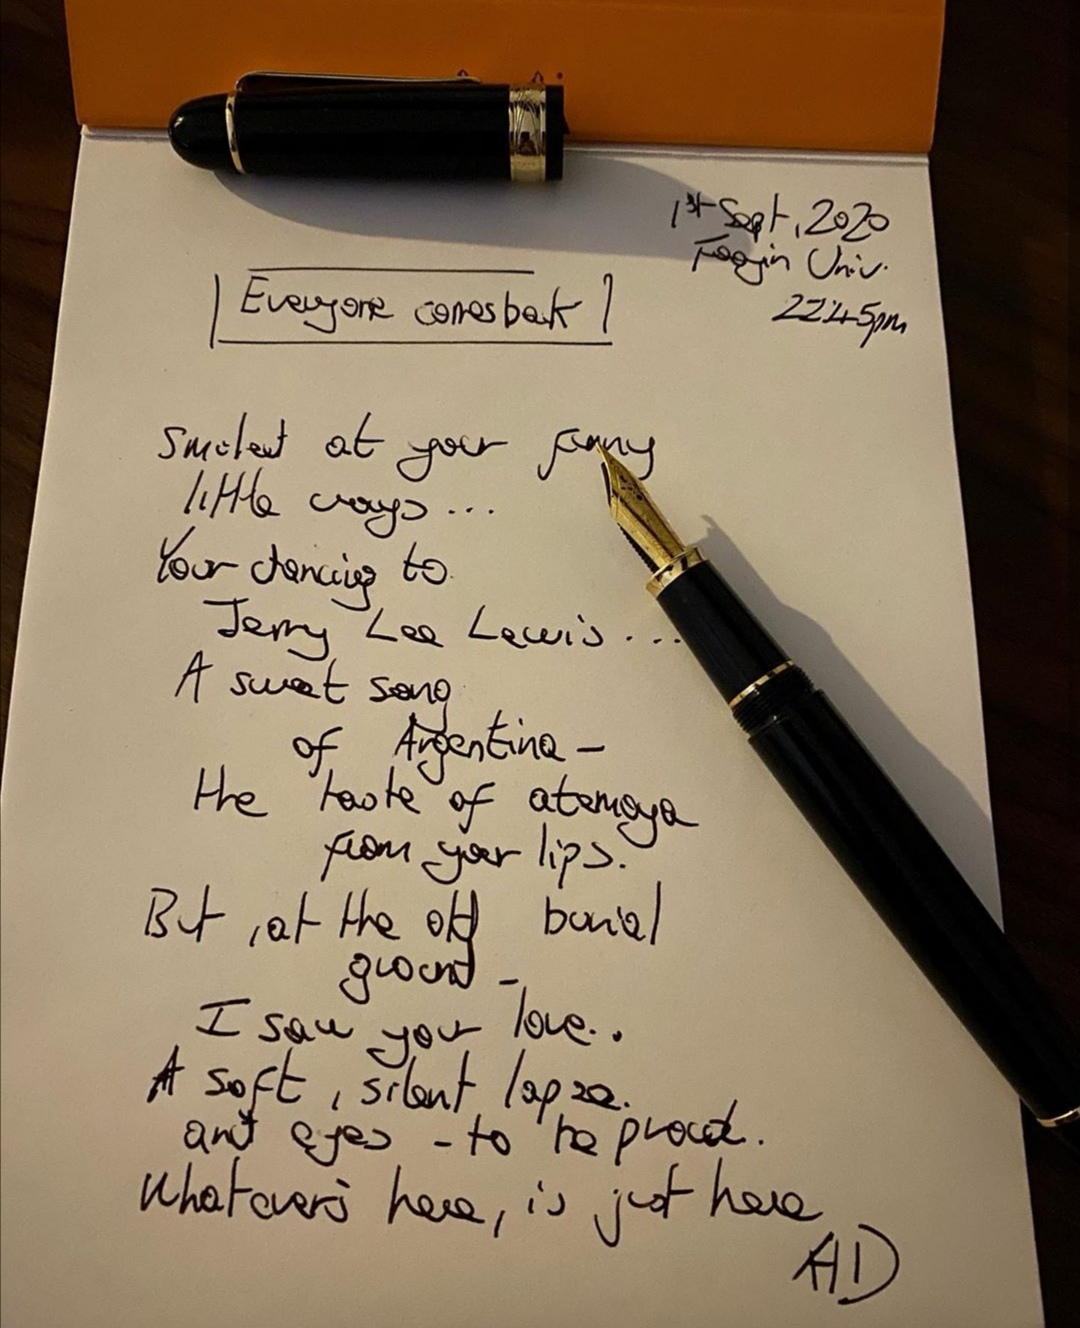 1st Sept, 2020
Univ.
22:45pm
Everyone comes back
Smiled at your funny
little ways...
Your dancing to
Jerry Lee Lewis...
A sweet song
of Argentina -
the taste of atemoya
from your lips.
But, at the old burial
ground -
I saw your love..
A soft, silent lapse.
and eyes - to be proud.
Whatever's here, is just here
AD